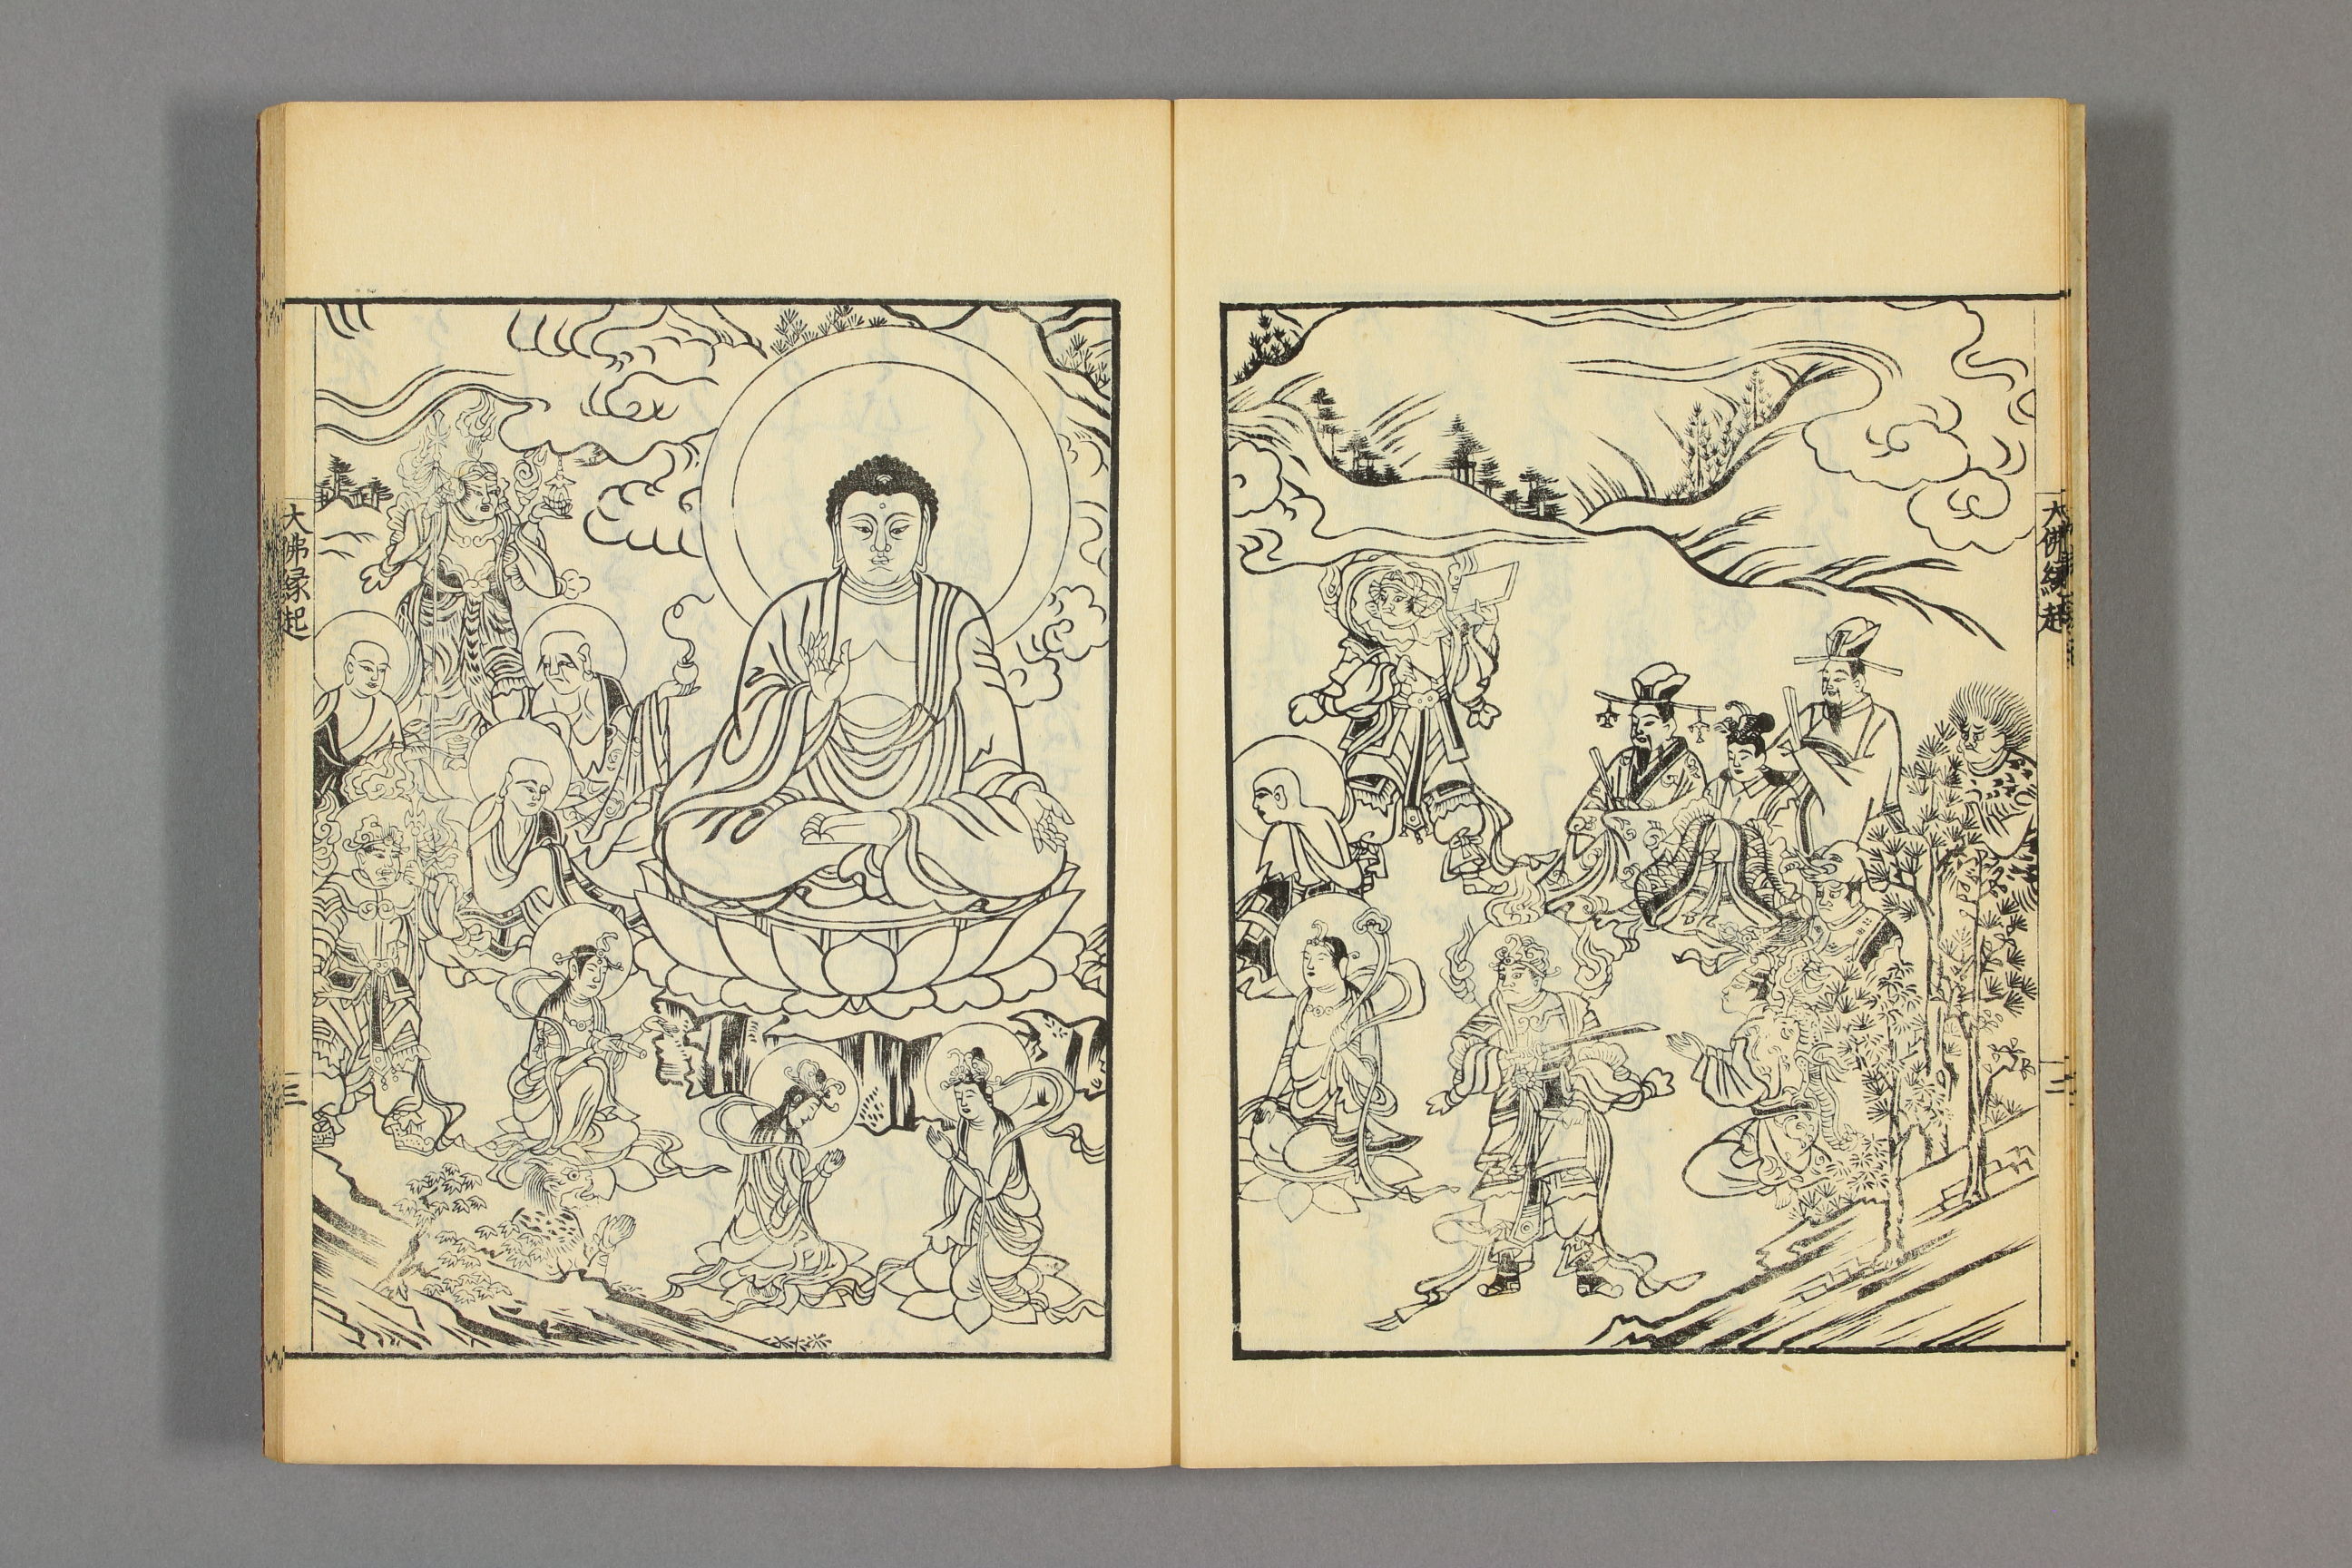 大佛縁起
二
大佛縁起
三